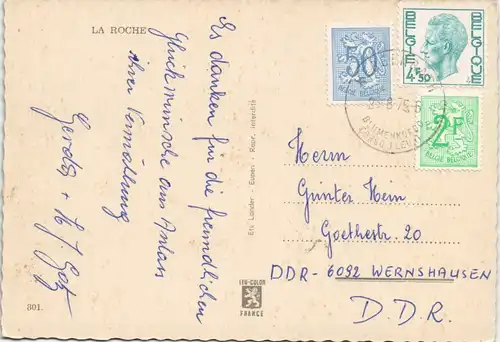 LA ROCHE
Es danken für die freundlichen
Glückwünsche aus Anlass
ihrer Vermählung
Gerda + H.J. Götz
801.
Ets Lander - Eupen - Repr. interdite
LUX-COLOR
FRANCE
50c
BELGIE-BELGIQUE
BELGIE BELGIQUE
4F50
2F
BELGIE-BELGIQUE
Herrn
Günter Hein
Goethestr. 20
DDR-6092 WERNSHAUSEN
D.D.R.